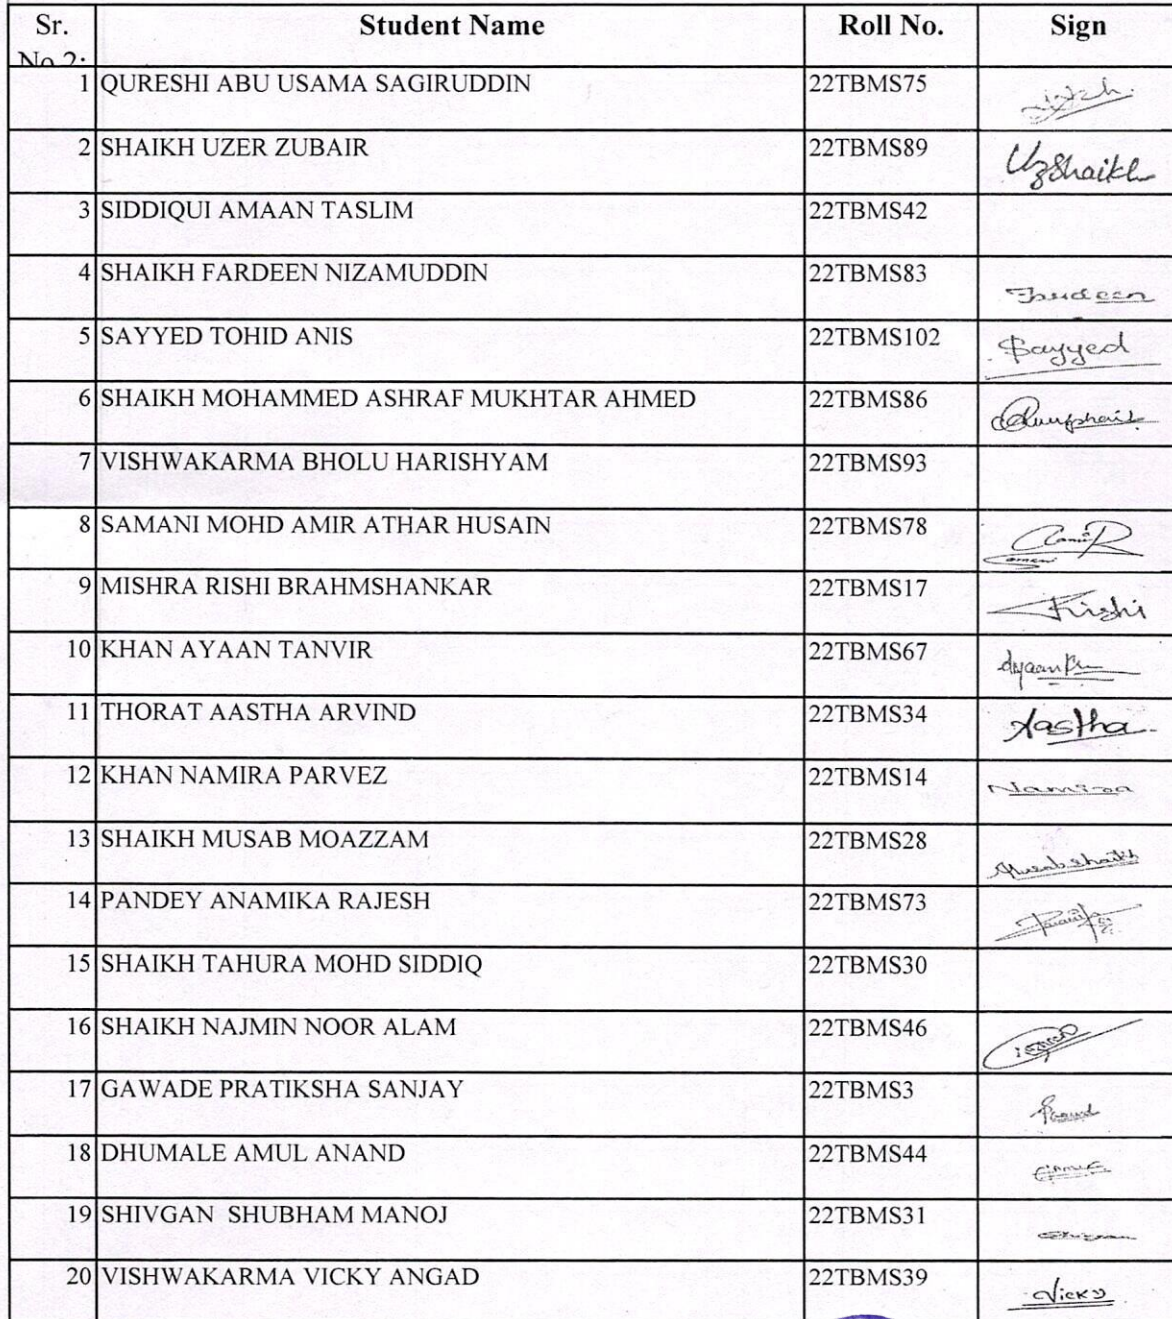 Sr. No 2: Student Name Roll No. Sign
1 QURESHI ABU USAMA SAGIRUDDIN 22TBMS75
2 SHAIKH UZER ZUBAIR 22TBMS89 UzShaikh
3 SIDDIQUI AMAAN TASLIM 22TBMS42
4 SHAIKH FARDEEN NIZAMUDDIN 22TBMS83 Fardeen
5 SAYYED TOHID ANIS 22TBMS102 Sayyed
6 SHAIKH MOHAMMED ASHRAF MUKHTAR AHMED 22TBMS86
7 VISHWAKARMA BHOLU HARISHYAM 22TBMS93
8 SAMANI MOHD AMIR ATHAR HUSAIN 22TBMS78
9 MISHRA RISHI BRAHMSHANKAR 22TBMS17 Rishi
10 KHAN AYAAN TANVIR 22TBMS67
11 THORAT AASTHA ARVIND 22TBMS34 Aastha
12 KHAN NAMIRA PARVEZ 22TBMS14 Namira
13 SHAIKH MUSAB MOAZZAM 22TBMS28
14 PANDEY ANAMIKA RAJESH 22TBMS73
15 SHAIKH TAHURA MOHD SIDDIQ 22TBMS30
16 SHAIKH NAJMIN NOOR ALAM 22TBMS46
17 GAWADE PRATIKSHA SANJAY 22TBMS3
18 DHUMALE AMUL ANAND 22TBMS44
19 SHIVGAN SHUBHAM MANOJ 22TBMS31
20 VISHWAKARMA VICKY ANGAD 22TBMS39 Vicky